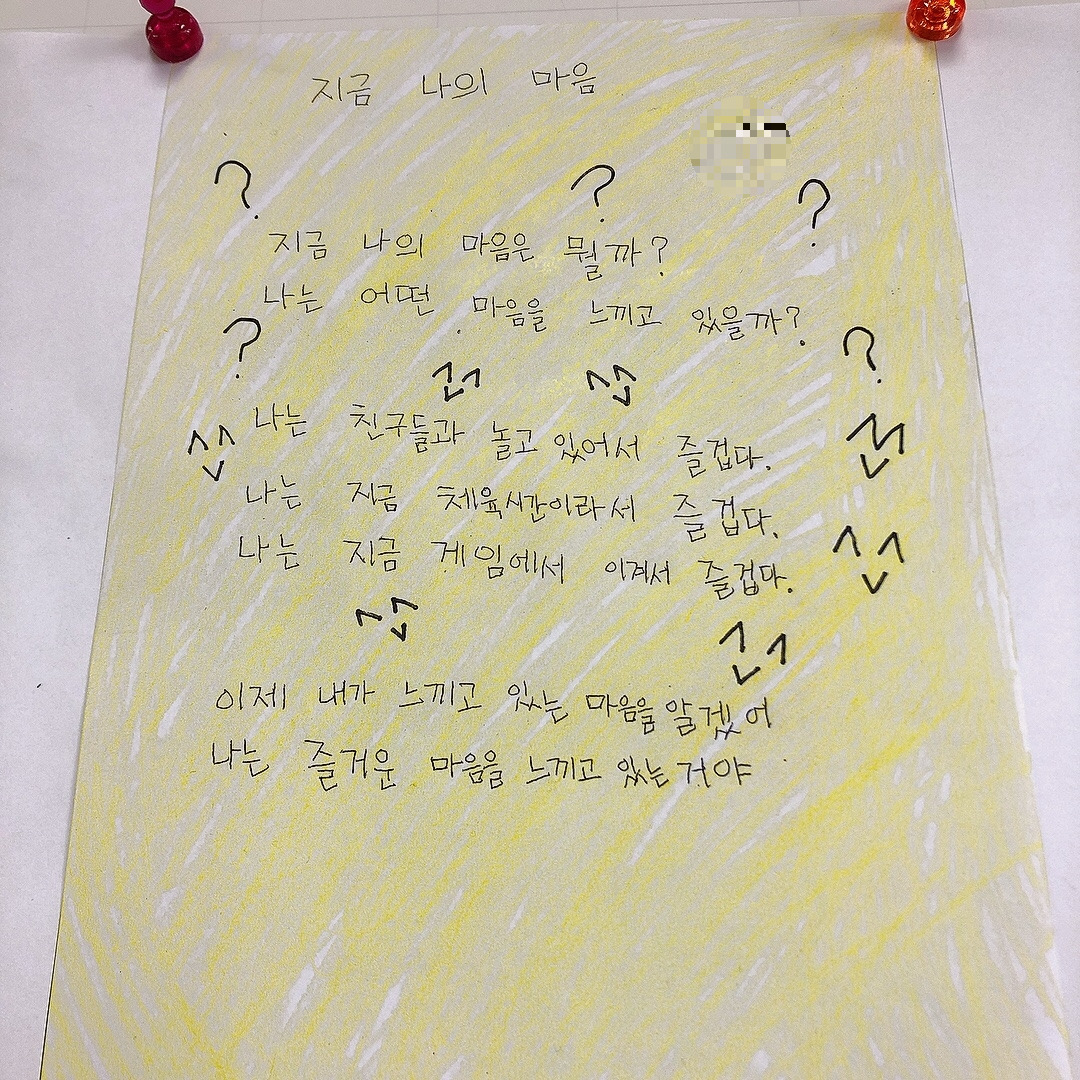 지금 나의 마음
? ? ?
지금 나의 마음은 뭘까?
나는 어떤 마음을 느끼고 있을까?
? ?
나는 친구들과 놀고 있어서 즐겁다.
나는 지금 체육시간이라서 즐겁다.
나는 지금 게임에서 이겨서 즐겁다.
이제 내가 느끼고 있는 마음을 알겠어
나는 즐거운 마음을 느끼고 있는 거야